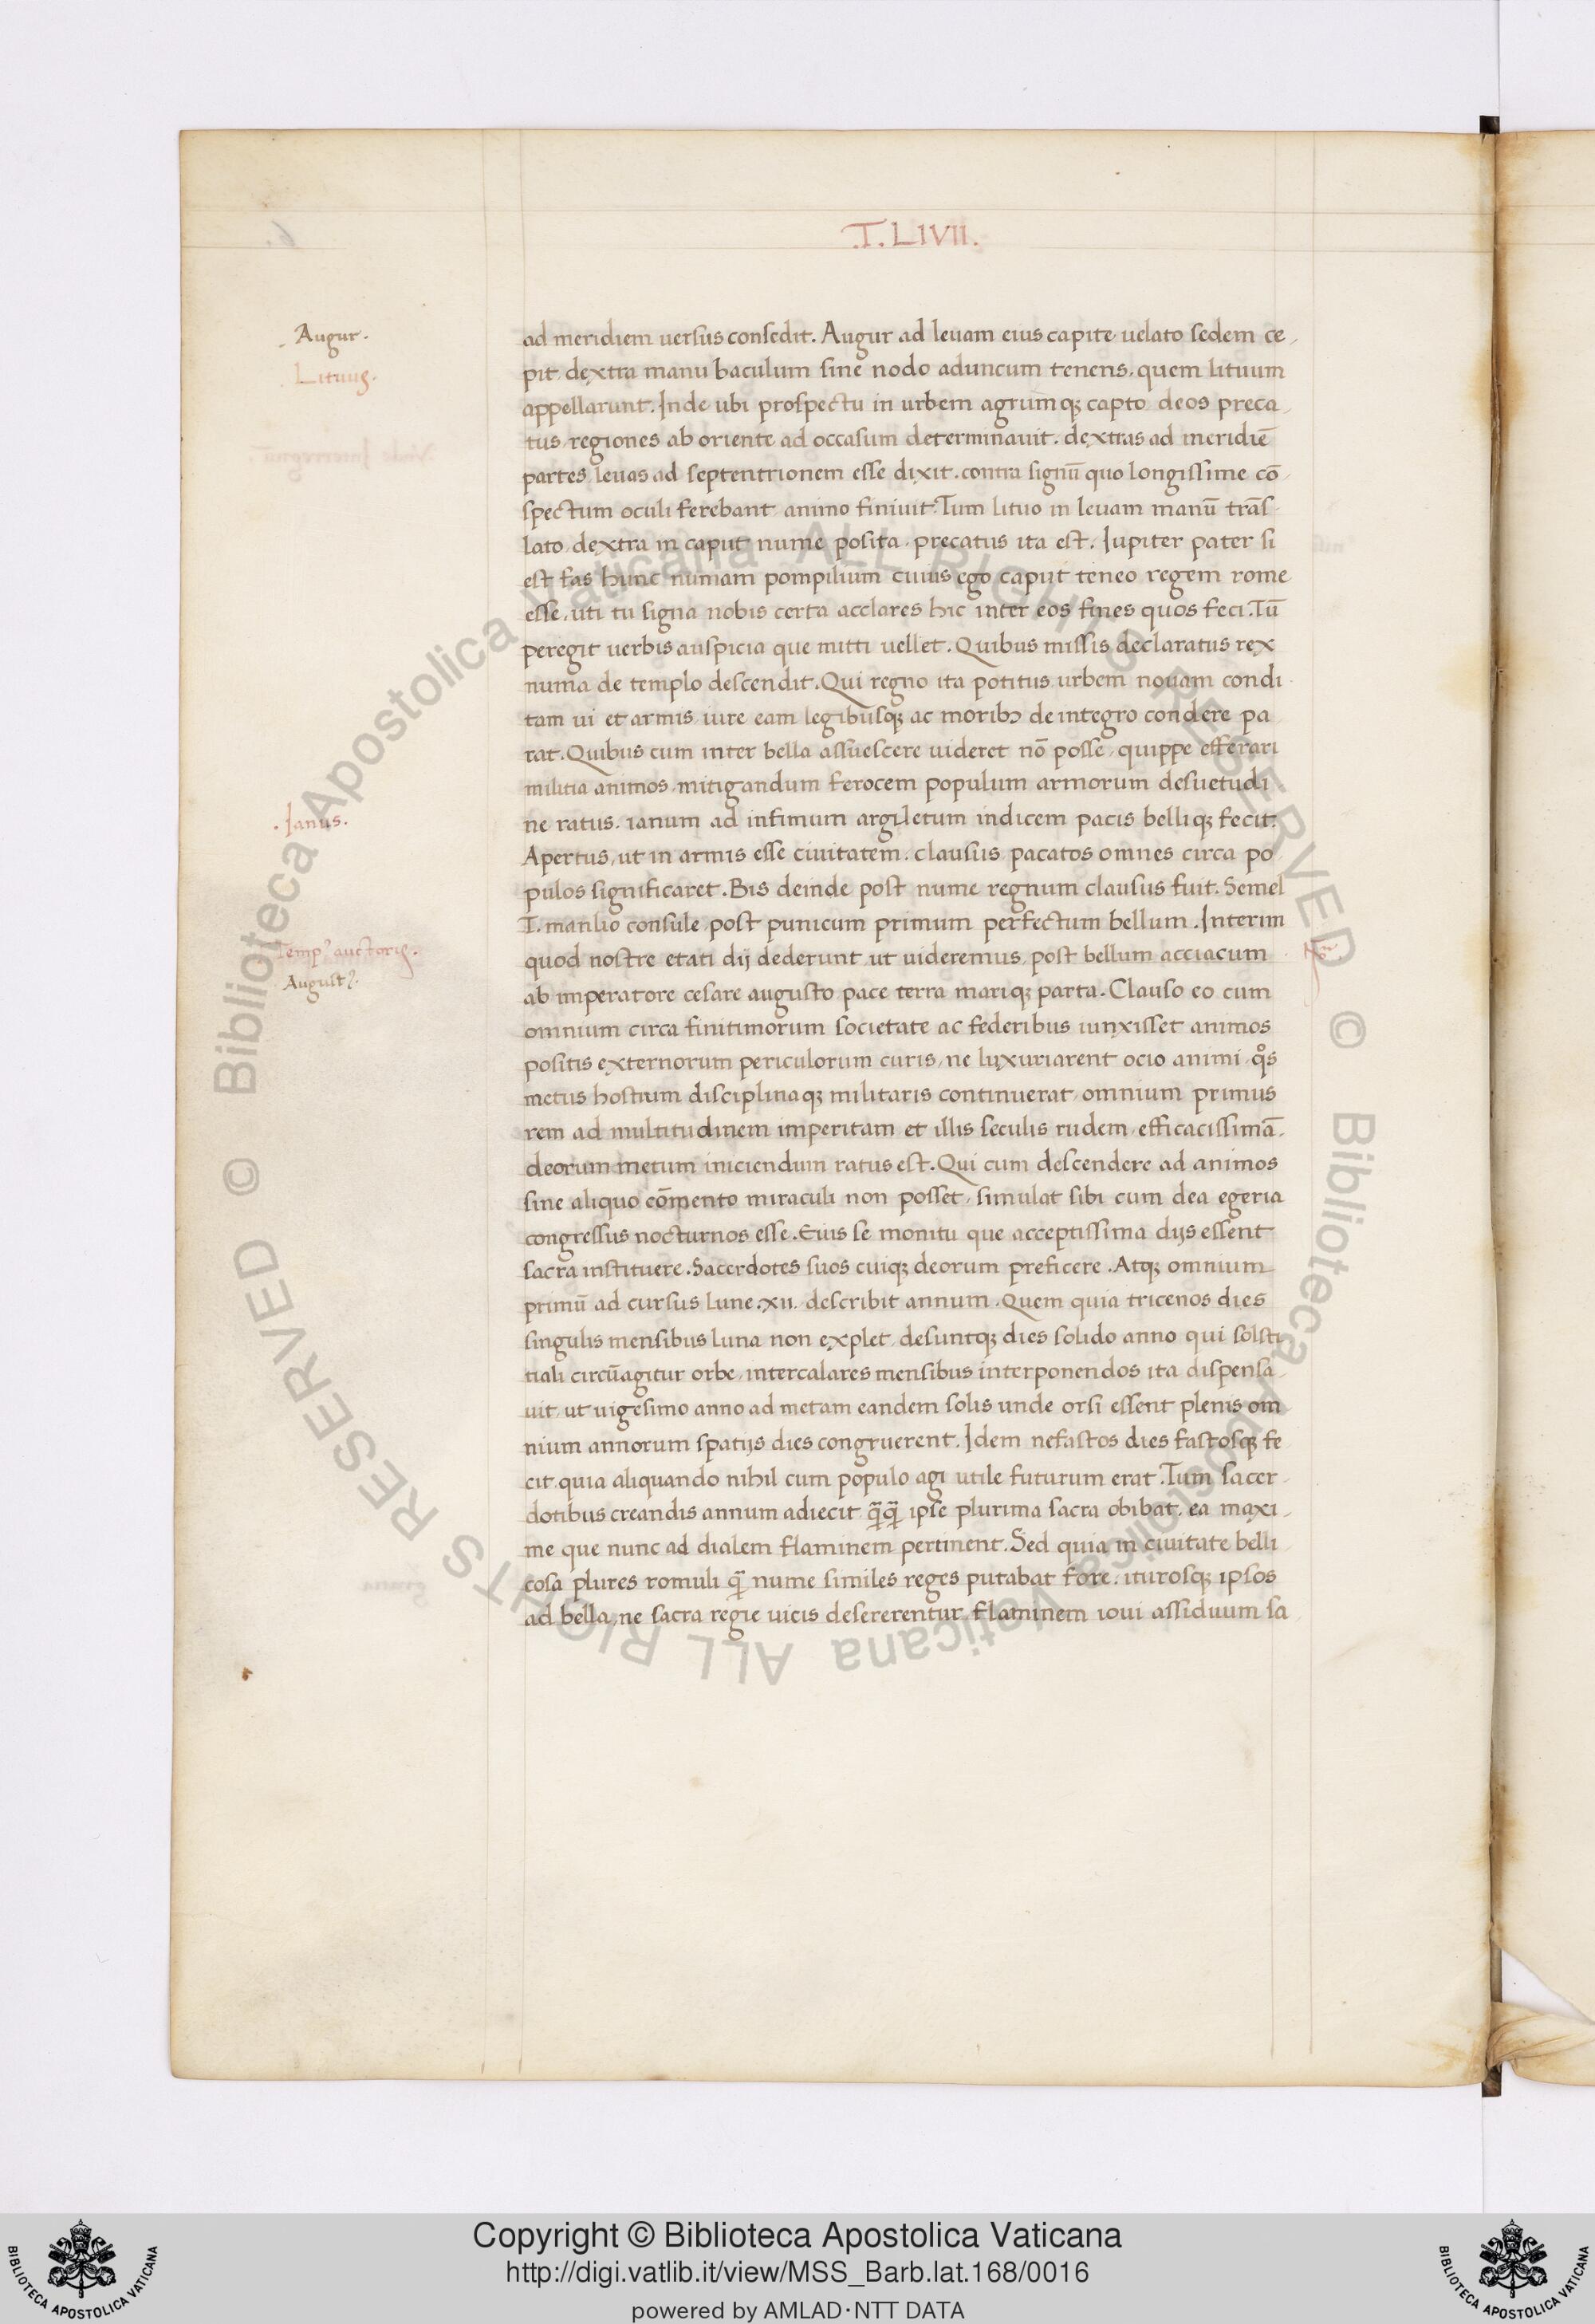 .T. LIVII.
. Augur .
. Lituus .
ad meridiem uersus consedit. Augur ad leuam eius capite uelato sedem ce,
pit dextra manu baculum sine nodo aduncum tenens. quem lituum
appellarunt. Inde ubi prospectu in urbem agrumqꝫ capto deos preca,
tus, regiones ab oriente ad occasum determinauit. dextras ad meridiē
partes, leuas ad septentrionem esse dixit. contra signū quo longissime cō
spectum oculi ferebant animo finiuit. Tum lituo in leuam manū trās
lato, dextra in caput nume posita, precatus ita est. Iupiter pater si
est fas hunc numam pompilium cuius ego caput teneo regem rome
esse, uti tu signa nobis certa acclares hic inter eos fines quos feci. Tū
peregit uerbis auspicia que mitti uellet. Quibus missis declaratus rex
numa de templo descendit. Qui regno ita potitus urbem nouam condi
tam ui et armis, iure eam legibusqꝫ ac moribꝰ de integro condere pa
rat. Quibus cum inter bella assuescere uideret nō posse, quippe efferari
militia animos, mitigandum ferocem populum armorum desuetudi
. Ianus .
ne ratus. ianum ad infimum argiletum indicem pacis belliqꝫ fecit.
Apertus, ut in armis esse ciuitatem. clausus pacatos omnes circa po
pulos significaret. Bis deinde post nume regnum clausus fuit. Semel
T. manlio consule, post punicum primum perfectum bellum. Interim
Temp⁹ auctoris.
August⁹.
quod nostre etati dij dederunt ut uideremus, post bellum acciacum
ab imperatore cesare augusto pace terra mariqꝫ parta. Clauso eo cum
omnium circa finitimorum societate ac federibus iunxisset animos
positis externorum periculorum curis, ne luxuriarent ocio animi, qͦs
metus hostium disciplinaqꝫ militaris continuerat, omnium primus
rem ad multitudinem imperitam et illis seculis rudem, efficacissimā,
deorum metum iniciendum ratus est. Qui cum descendere ad animos
sine aliquo cōmento miraculi non posset, simulat sibi cum dea egeria
congressus nocturnos esse. Eius se monitu que acceptissima dijs essent
sacra instituere. Sacerdotes suos cuiqꝫ deorum preficere. Atqꝫ omnium
primū ad cursus lune .xii. describit annum. Quem quia tricenos dies
singulis mensibus luna non explet, desuntqꝫ dies solido anno qui solsti
tiali circūagitur orbe, intercalares mensibus interponendos ita dispensa,
uit, ut uigesimo anno ad metam eandem solis unde orsi essent plenis om
nium annorum spatijs dies congruerent. Idem nefastos dies fastosqꝫ fe
cit quia aliquando nihil cum populo agi utile futurum erat. Tum sacer,
dotibus creandis annum adiecit q̄q̄ ipse plurima sacra obibat. ea maxi,
me que nunc ad dialem flaminem pertinent. Sed quia in ciuitate belli
cosa plures romuli q̄ nume similes reges putabat fore. iturosqꝫ ipsos
ad bella, ne sacra regie uicis desererentur, flaminem ioui assiduum sa
© Biblioteca Apostolica Vaticana ALL RIGHTS RESERVED © Biblioteca Apostolica Vaticana ALL RIGHTS RESERVED
Copyright © Biblioteca Apostolica Vaticana
http://digi.vatlib.it/view/MSS_Barb.lat.168/0016
powered by AMLAD·NTT DATA
BIBLIOTECA APOSTOLICA VATICANA
BIBLIOTECA APOSTOLICA VATICANA